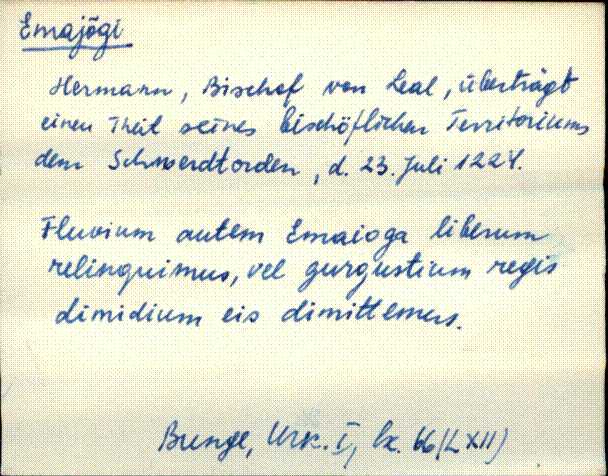 Emajõgi
Hermann, Bischof von Leal, überträgt
einen Theil seines bischöflichen Territoriums
dem Schwerdtorden, d. 23. Juli 1224.
Fluvium autem Emaioga liberum
relinquimus, vel gurgustium regis
dimidium eis dimittemus.
Bunge, Urk. I, lk. 66 (LXII)